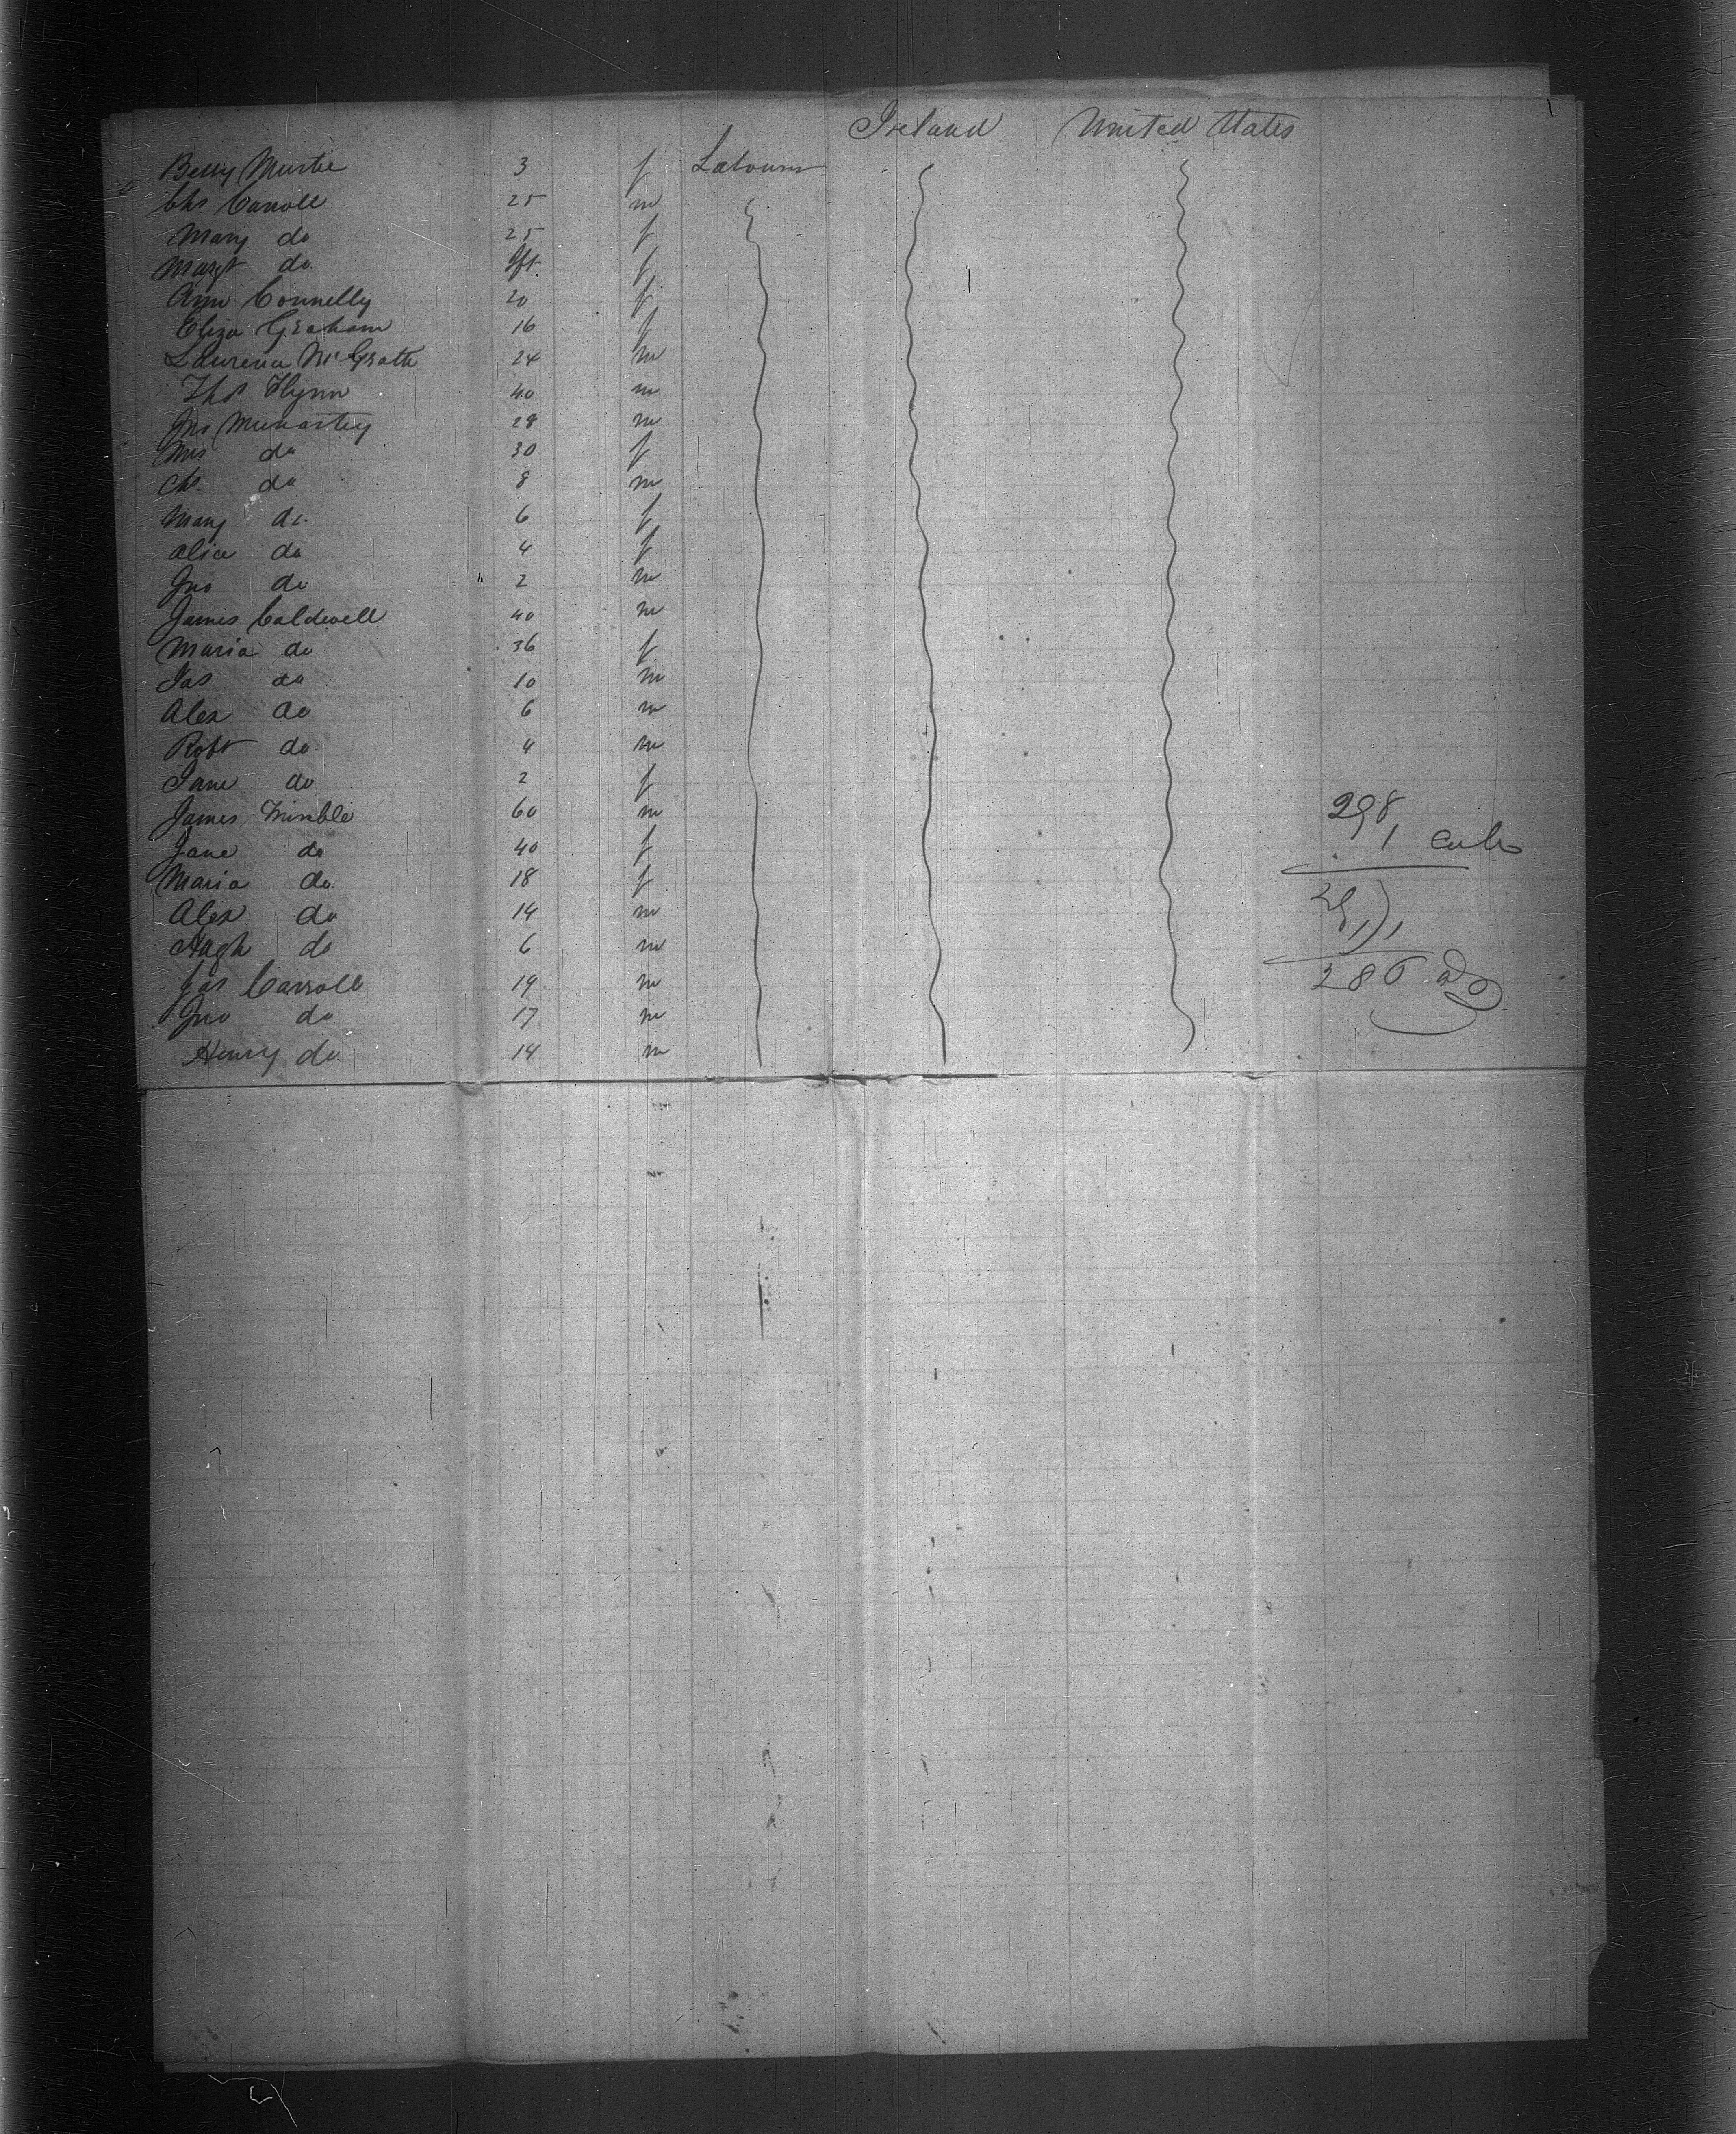 Ireland United States
Betsy Murtie 3 f Labourer
Chs Carroll 25 m
Mary do 25 f
Margt do Ift. f
Ann Connelly 20 f
Eliza Graham 16 f
Laurence McGrath 24 m
Thos Flynn 40 m
Jno 28 m
Mrs do 30 f
Chs do 8 m
Mary do 6 f
Alice do 4 f
Jno do 2 m
James Caldwell 40 m
Maria do 36 f
Jas do 10 m
Alex do 6 m
Robt do 4 m
Jane do 2 f
James Trimble 60 m
298
Jane do 40 f
1
Maria do 18 f
Alex do 14 m
Hugh do 6 m
Jas Carroll 19 m
286
Jno do 17 m
Henry do 14 m